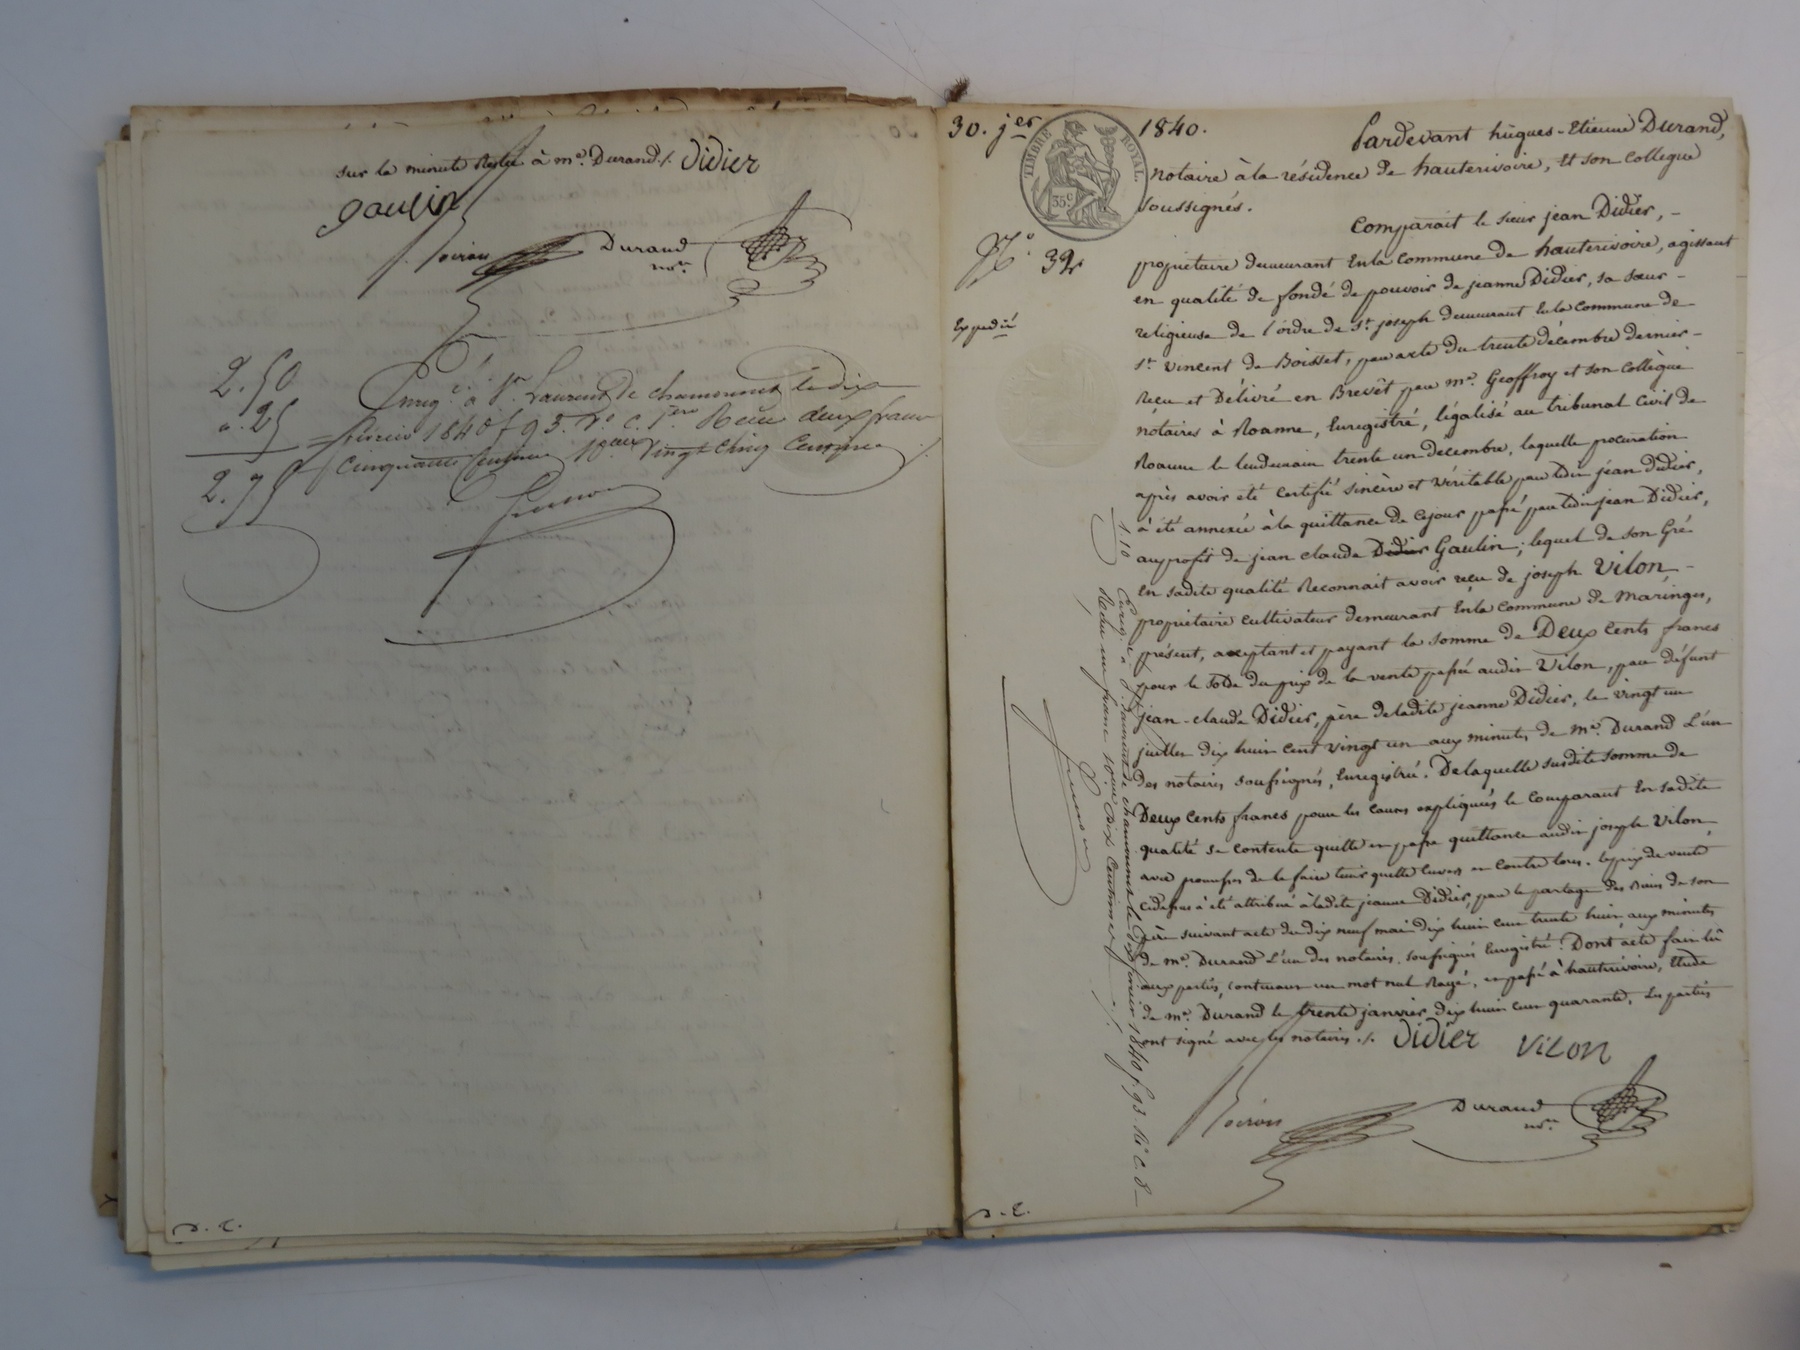 sur la minute restée à me. Durand ./. Didier
gaulin
Durand
nore.
2.50
Enregé. à St. Laurent de chamousset le dix
". 25
février 1840 f 93. Vo. c. 1ere Reçu deux francs
cinquante centimes 10eme vingt cinq centimes
2.75
30. jer 1840.
TIMBRE ROYAL.
35c.
Pardevant hugues-Etienne Durand,
notaire à la résidence de hauterivoire, Et son Collegue
soussignés.
Comparait le sieur jean Didier, -
No. 32
propriétaire demeurant En la Commune de hauterivoire, agissant
en qualité de fondé de pouvoir de jeanne Didier, sa sœur -
Expédié
religieuse de l'ordre de St. joseph demeurant En la Commune de
St. Vincent de Boisset, par acte du trente décembre dernier -
Reçu et Délivré en Brevêt par me. Geoffroy et son Collègue
notaires à Roanne, Enregistré, légalisé au tribunal Civil de
Roanne le lendemain trente un decembre, laquelle procuration
après avoir été certifié sincère et véritable par ledit jean didier,
à été annexée à la quittance de cejour passé par ledit jean Didier,
au profit de jean claude Didier Gaulin; lequel de son Gré
En sadite qualité Reconnait avoir reçu de joseph Vilon -
propriétaire cultivateur demeurant En la Commune de Maringes,
présent, acceptant et payant la somme de Deux Cents francs
pour le solde du prix de la vente passée audit Vilon, par défunt
jean-claude Didier, père de ladite jeanne Didier, le vingt un
juillet dix huit cent vingt un aux minutes de me. Durand L'un
des notaires soussignés, Enregistré. De laquelle susdite somme de
Deux Cents francs pour les causes expliquées le Comparant En sadite
qualité se contente quitte en passe quittance audit joseph Vilon
avec promesse de le faire tenir quitte Envers et Contre tous. le prix de vente
cidessus à été attribué à ladite jeanne Didier, par le partage des Biens de son
père suivant acte du dix neuf mai dix huit cent trente huit aux minutes
de me. Durand L'un des notaires soussignés Enregistré. Dont acte fait lû
aux parties, contenant un mot nul Rayé, et passé à hauterivoire, Etude
de me. Durand le trente janvier dix huit cent quarante, Les parties
ont signé avec les notaires ./. Didier Vilon
Durand
nore.
1.10 Enregé. à St. Laurent de chamousset le Dix février 1840 f. 93. Vo. c. 8 -
Reçu un franc 10eme Dix Centimes